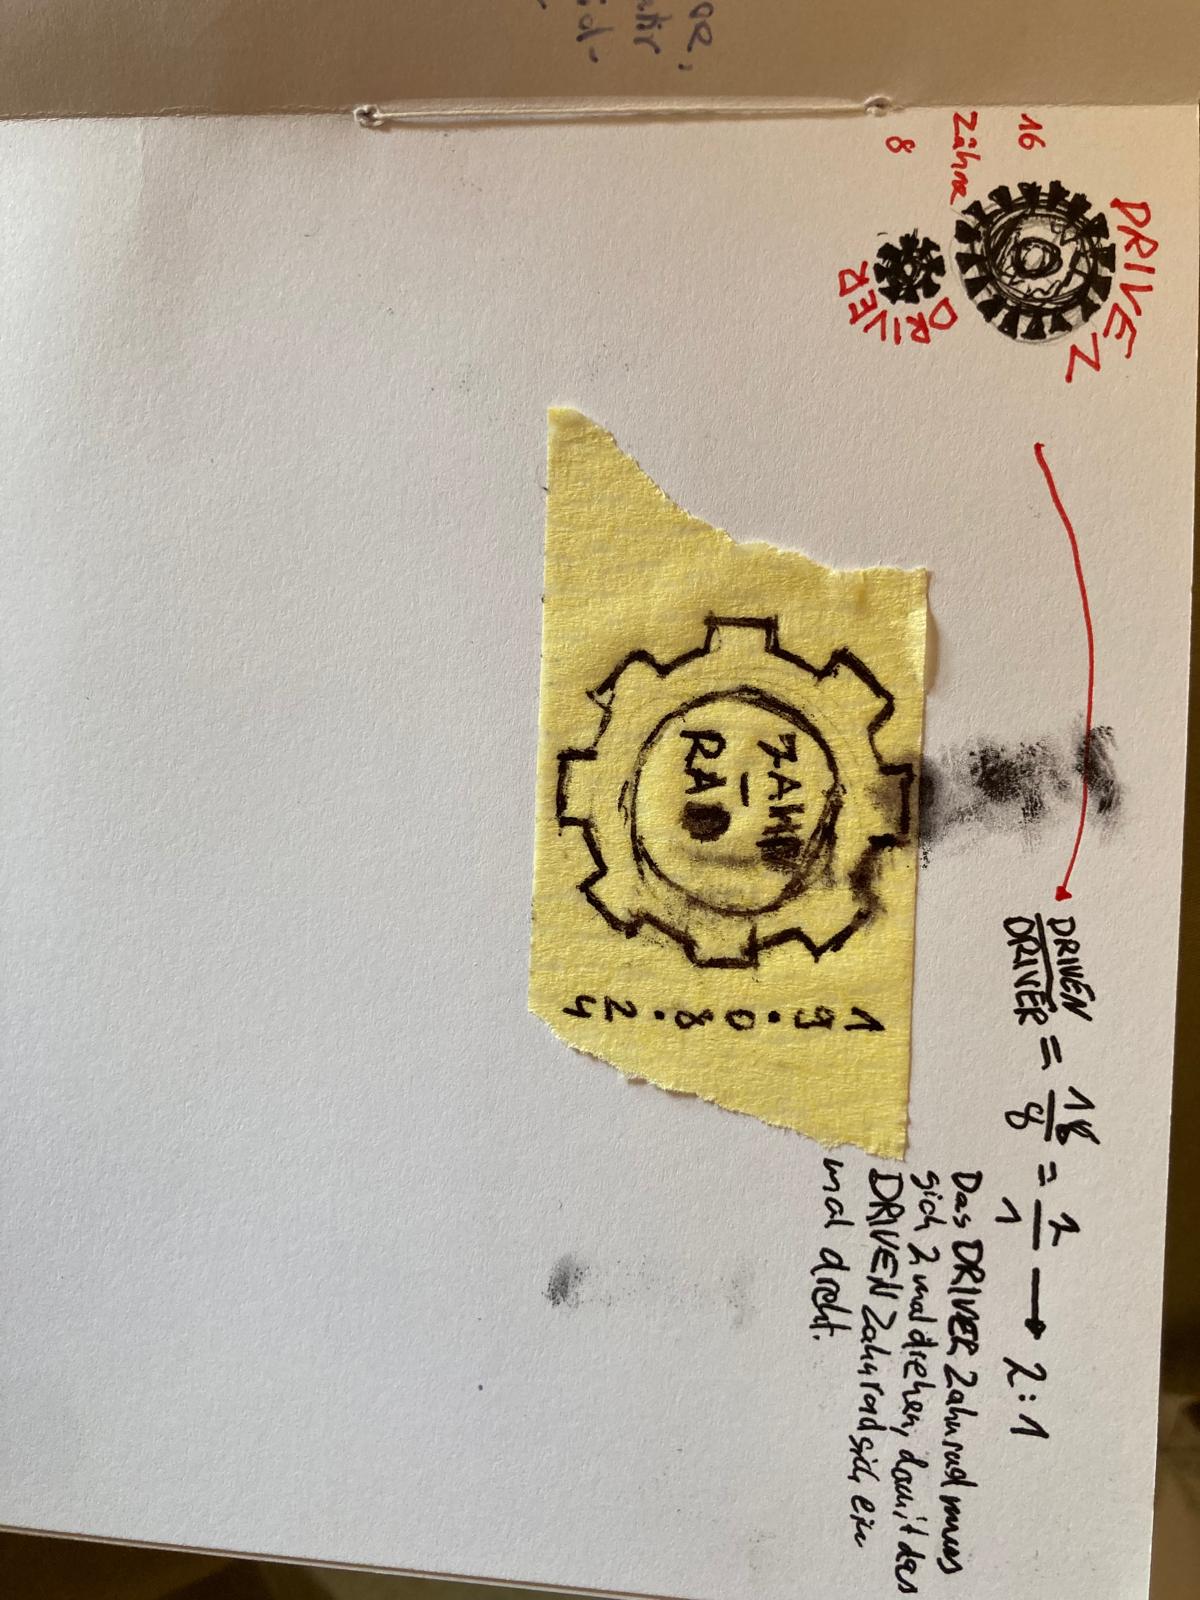 DRIVEN
16
Zähne
8
DRIVER
DRIVEN/DRIVER = 16/8 = 2/1 → 2:1
Das DRIVER Zahnrad muss
sich 2 mal drehen, damit das
DRIVEN Zahnrad sich ein
mal dreht.
ZAHN
-
RAD
19.08.24